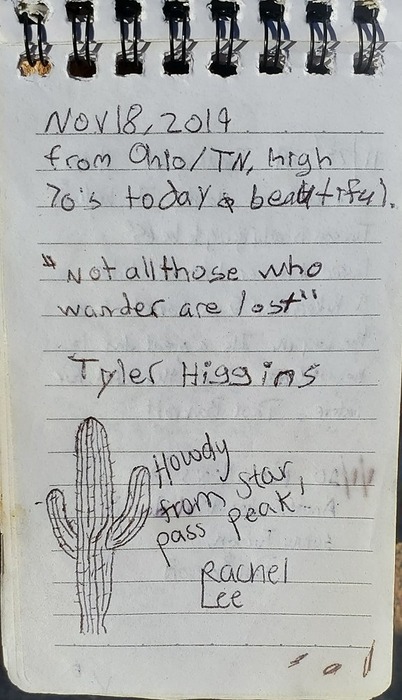 Nov 18, 2019
from Ohio/TN, high
70's today & beautiful.
"Not all those who
wander are lost"
Tyler Higgins
Howdy
from star,
pass peak,
Rachel
Lee